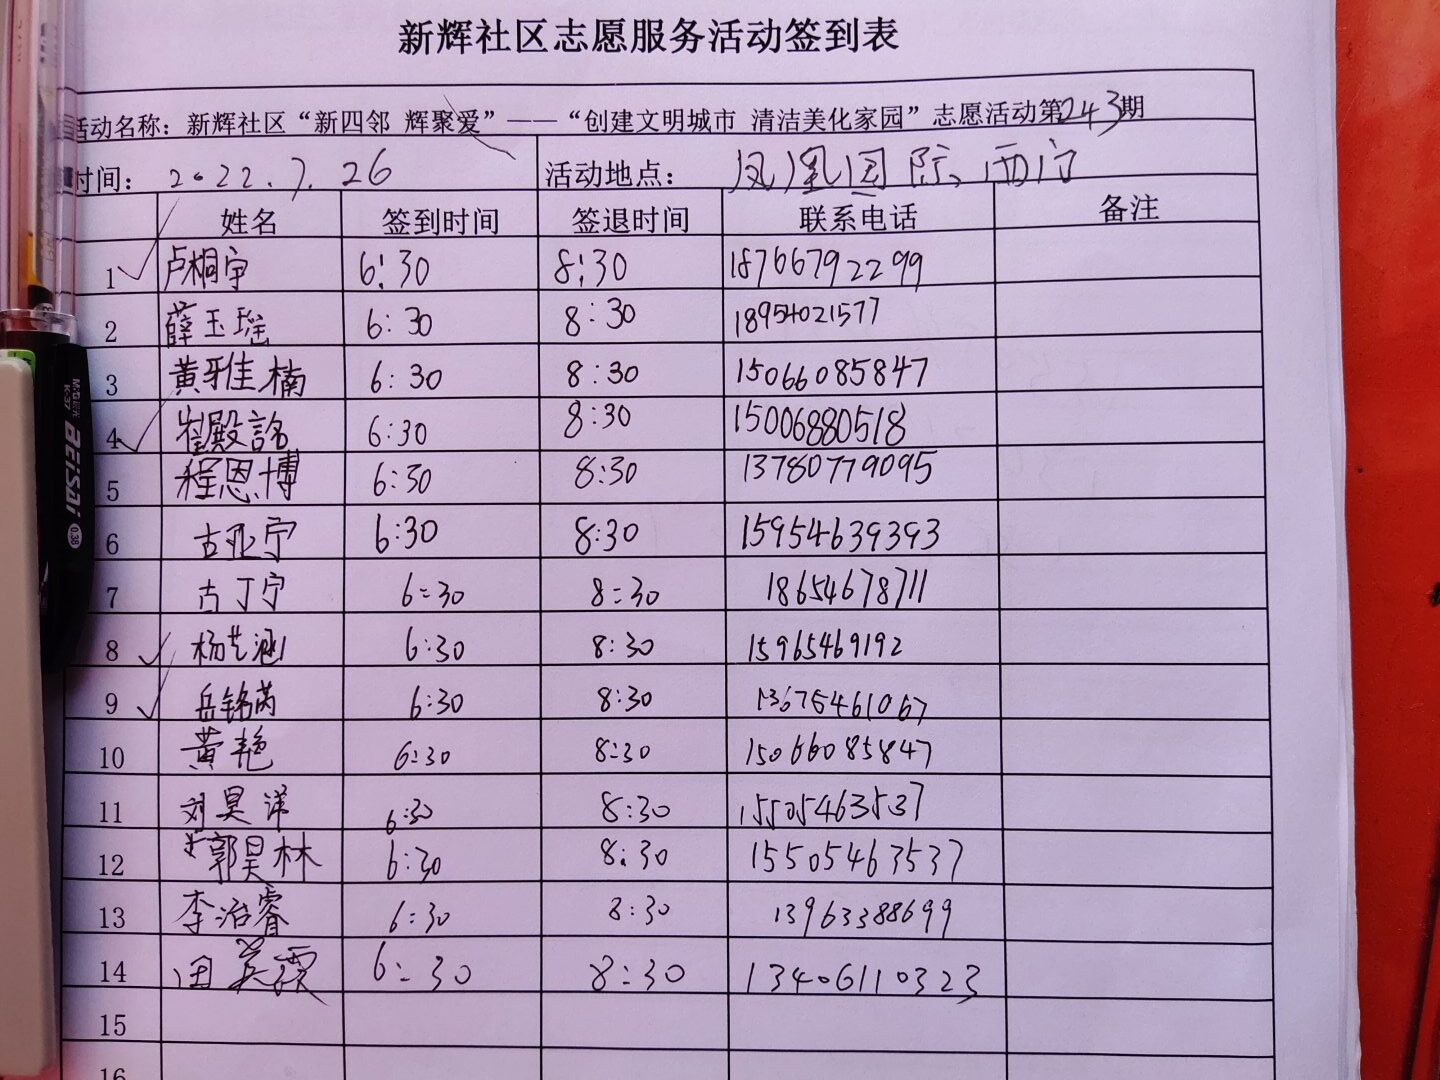 新辉社区志愿服务活动签到表
活动名称：新辉社区“新四邻 辉聚爱”——“创建文明城市 清洁美化家园”志愿活动第243期
时间： 2022.7.26 活动地点： 凤凰国际西门
姓名 签到时间 签退时间 联系电话 备注
1 卢桐宇 6:30 8:30 18766792299
2 薛玉瑶 6:30 8:30 18954021577
3 黄雅楠 6:30 8:30 15066085847
4 崔殿詺 6:30 8:30 15006880518
5 程恩博 6:30 8:30 13780779095
6 古亚宁 6:30 8:30 15954639393
7 古丁宁 6:30 8:30 18654678711
8 杨艺涵 6:30 8:30 15965469192
9 岳铭芮 6:30 8:30 13675461067
10 黄艳 6:30 8:30 15066085847
11 刘昊洋 6:30 8:30 15505463537
12 郭昊林 6:30 8:30 15505463537
13 李治睿 6:30 8:30 13963388699
14 田英霞 6:30 8:30 13406110323
15
16
M&G 晨光
K-37
BEISAI
0.38